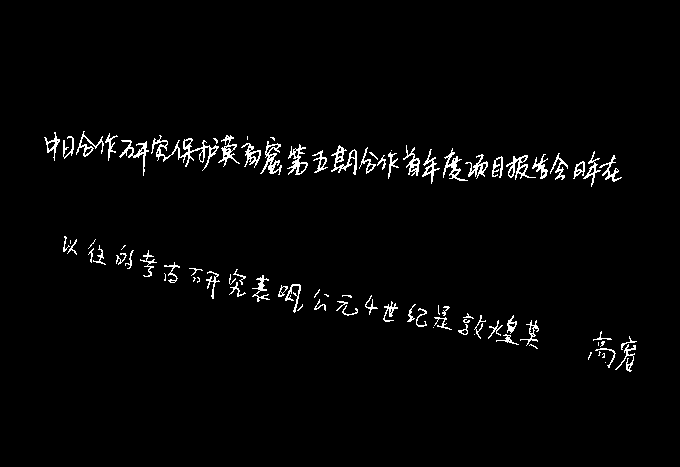 中日合作研究保护莫高窟第五期合作首年度项目报告会日昨在
以往的考古研究表明公元4世纪是敦煌莫高窟